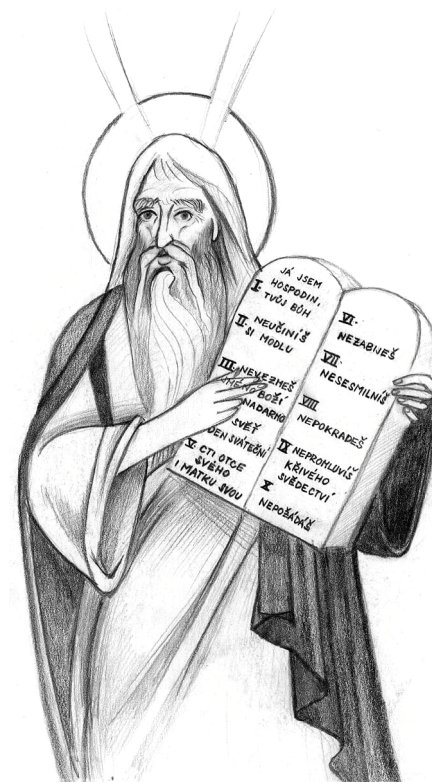 JÁ JSEM
I. HOSPODIN,
TVŮJ BŮH
II. NEUČINÍŠ
SI MODLU
III. NEVEZMEŠ
BOŽÍ
NADARMO
SVĚŤ
DEN SVÁTEČNÍ
V. CTI OTCE
SVÉHO
I MATKU SVOU
VI.
NEZABIJEŠ
VII.
NESESMILNÍŠ
VIII
NEPOKRADEŠ
IX NEPROMLUVÍŠ
KŘIVÉHO
SVĚDECTVÍ
X
NEPOŽÁDÁŠ